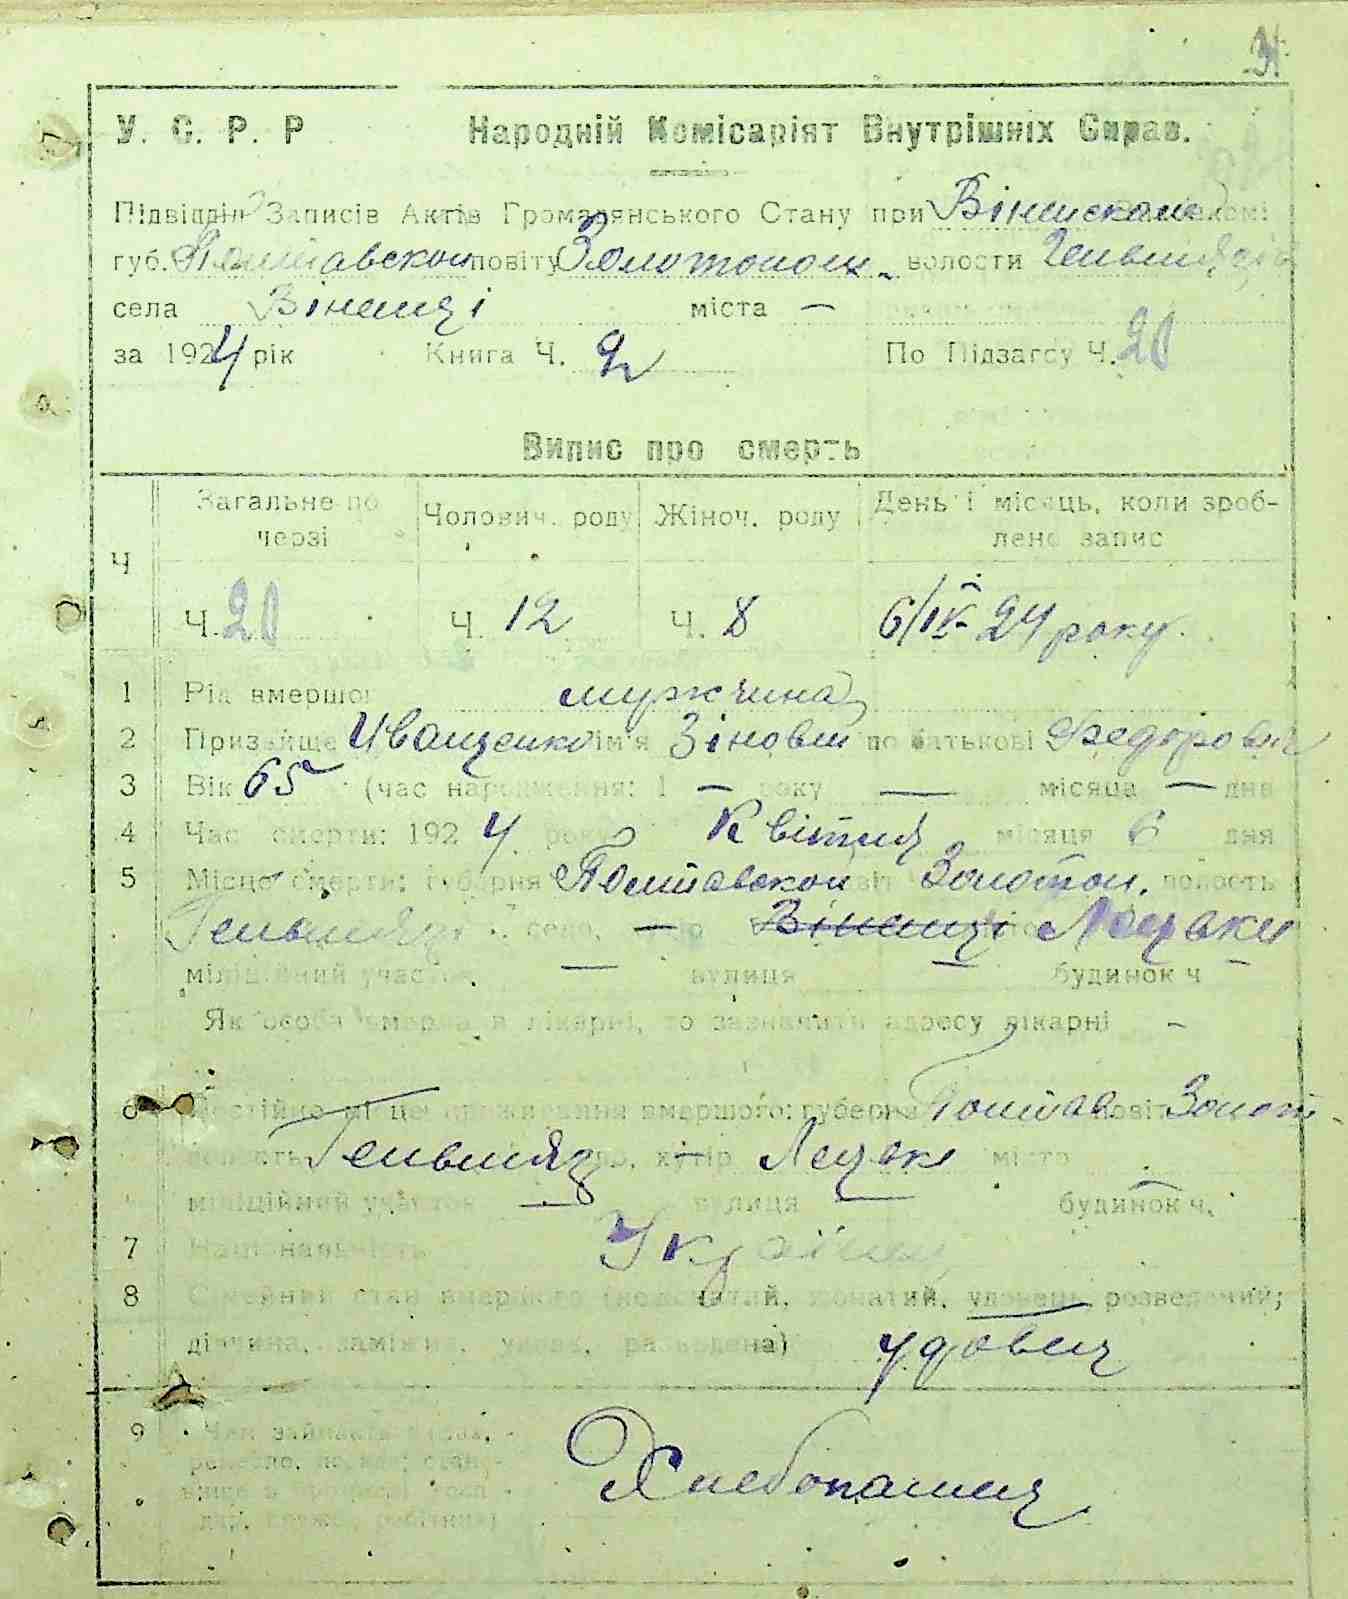 31
У. С. Р. Р Народній Комісаріят Внутрішніх Справ.
Підвідділ Записів Актів Громадянського Стану при Вінинском
губ. Полтавскои повіту Золотонош. волости Гельмязів
села Вінинці міста —
за 1924 рік Книга Ч. 2 По Підзагсу Ч. 20
Випис про смерть
Ч Загальне по черзі Чолович. роду Жіноч. роду День і місяць, коли зроблено запис
Ч. 20 Ч. 12 Ч. 8 6/IV-24 року.
1 Рід вмершого мужчина
2 Призвіще Иващенко ім'я Зіновій по батькові Федорович
3 Вік 65 (час народження: 1 — року — місяця — дня
4 Час смерти: 1924 року Квітня місяця 6 дня
5 Місце смерти: губерня Полтавскои повіт Золотон. волость
Гельмяз село, — Вінинці Лецьки
міліційний участок — вулиця — будинок ч —
Як особа вмерла в лікарні, то зазначити адресу лікарні -
6 Постійне місце проживання вмершого: губерня Полтав повіт Золот.
волость Гельмяз село, хутір — Лецьки місто —
міліційний участок — вулиця — будинок ч.
7 Національність Українец
8 Сімейний стан вмершого (нежонатий, жонатий, удовець, розведений;
дівчина, заміжня, удова, розведена) удовец
9 Чим займався
Хлебопашец